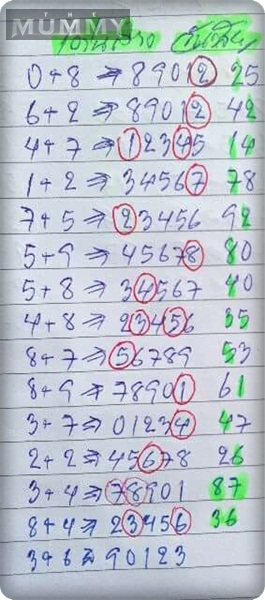 MUMMY
0+8 ⇒ 89012 25
6+2 ⇒ 89012 42
4+7 ⇒ 12345 14
1+2 ⇒ 34567 78
7+5 ⇒ 23456 92
5+9 ⇒ 45678 80
5+8 ⇒ 34567 40
4+8 ⇒ 23456 35
8+7 ⇒ 56789 53
8+9 ⇒ 78901 61
3+7 ⇒ 01234 47
2+2 ⇒ 45678 26
3+4 ⇒ 78901 87
8+4 ⇒ 23456 36
3+6 ⇒ 90123